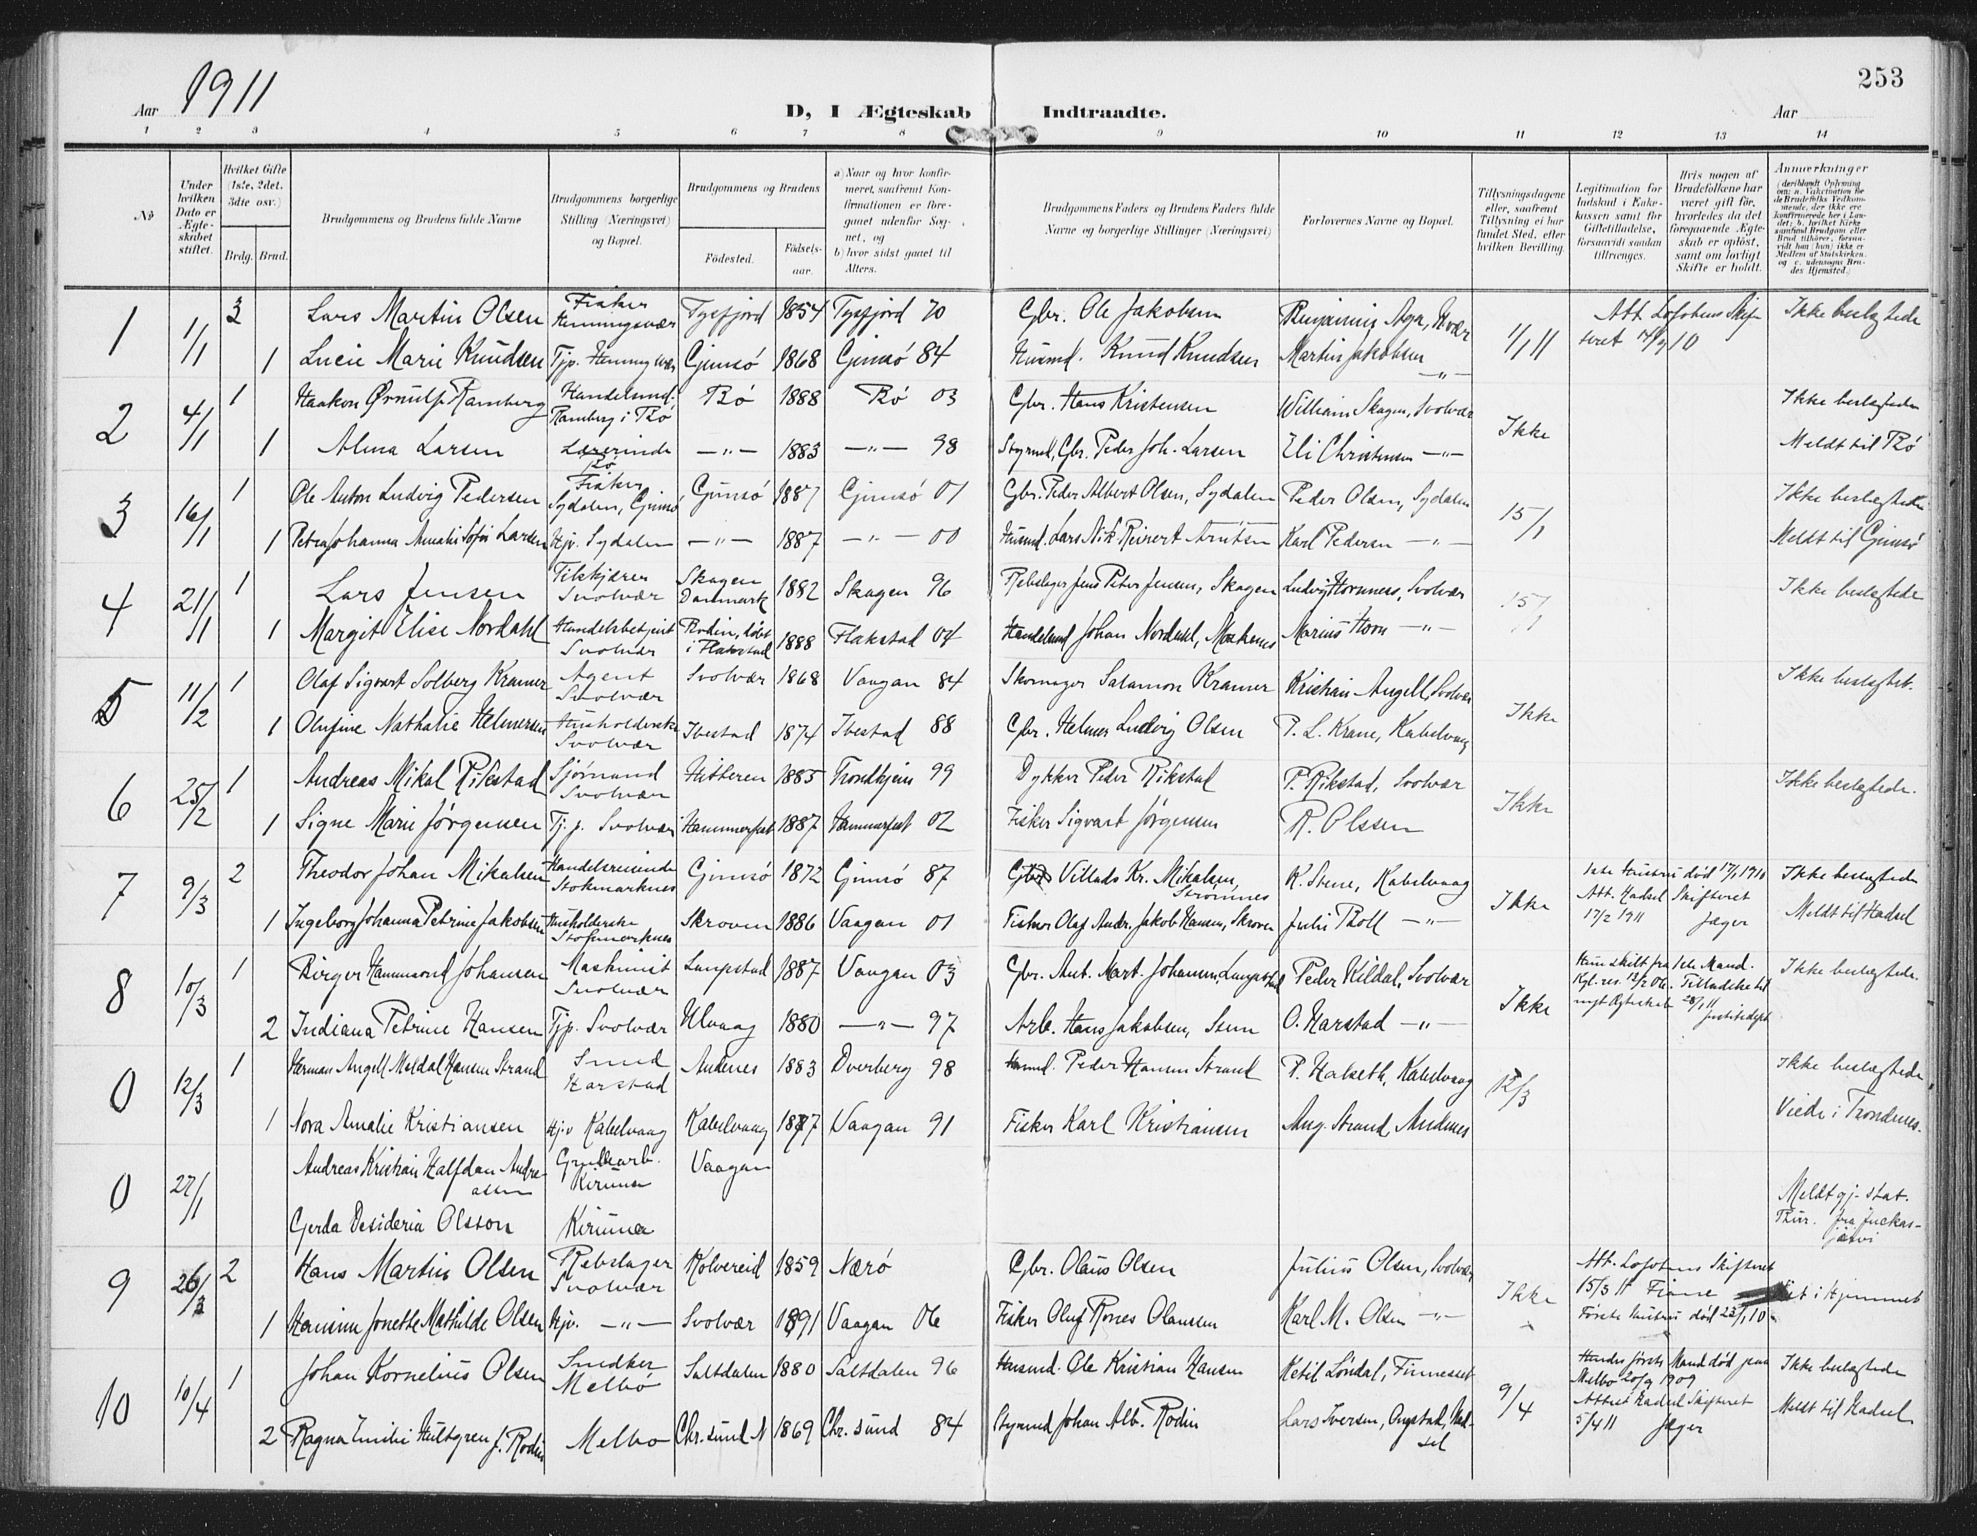 253
Aar 1911
D, I Ægteskab Indtraadte.
Aar
1 2 3 4 5 6 7 8 9 10 11 12 13 14
No
Under hvilken Dato er Ægteskabet stiftet.
Hvilket Gifte (1ste, 2det, 3die osv.)
Brdg. Brud.
Brudgommens og Brudens fulde Navne
Brudgommens borgerlige Stilling (Næringsvei) og Bopæl.
Brudgommens og Brudens
Fødested.
Fødselsaar.
a) Naar og hvor konfirmeret, saafremt Konfirmationen er foregaaet udenfor Sognet, og
b) hvor sidst gaaet til Alters.
Brudgommens Faders og Brudens Faders fulde Navne og borgerlige Stillinger (Næringsvei)
Forlovernes Navne og Bopæl.
Tillysningsdagene eller, saafremt Tillysning ei har fundet Sted, efter hvilken Bevilling.
Legitimation for Indskud i Enkekassen samt for Giftetilladelse, forsaavidt saadan tiltrænges.
Hvis nogen af Brudefolkene har været gift før, hvorledes da det foregaaende Ægteskab er opløst, samt om lovligt Skifte er holdt.
Anmærkninger
1 1/1 3 Lars Martin Olsen Fisker Henningsvær Tysfjord 1854 Tysfjord 70 Gbr. Ole Jakobsen 1/1 11 Att. Lofotens Skifteret 14/9 10 Ikke beslægtede
1 Lucie Marie Knudsen Tjp. Henningsvær Gimsø 1868 Gimsø 84 Husmd. Knud Knudsen Martin Jakobsen —"—
2 4/1 1 Haakon Ørnulf Ramberg Handelsmd. Ramberg i Bø Bø 1888 Bø 03 Gbr. Hans Kristensen William Skagen, Svolvær Ikke Ikke beslægtede
1 Alma Larsen Lærerinde Bø —"— 1883 —"— 98 Styrmd, Gbr. Peder Joh. Larsen Eli Christensen —"— Meldt til Bø
3 16/1 1 Ole Anton Ludvig Pedersen Fisker Sydalen, Gimsø Gimsø 1887 Gimsø 01 Gbr. Peder Albert Olsen, Sydalen Peder Olsen, Sydalen 15/1 Ikke beslægtede
1 Petra Johanna Amalie Sofie Larsen Hjv. Sydalen —"— 1887 —"— 00 Husmd. Lars Nik. Reinert Arntsen Karl Pedersen —"— Meldt til Gimsø
4 21/1 1 Lars Jensen Svolvær Skagen Danmark 1882 Skagen 96 Rebslager Jens Peter Jensen, Skagen Ludvig Hornnes, Svolvær 15/1 Ikke beslægtede
1 Margit Elise Nordahl Handelsbetjent Svolvær Bodin, døbt i Flakstad 1888 Flakstad 04 Handelsmd Johan Nordahl, Marius Horn —"—
5 11/2 1 Olaf Sigvart Solberg Kramer Agent Svolvær Svolvær 1868 Vaagan 84 Skomager Salamon Kramer Kristian Angell, Svolvær Ikke Ikke beslægtet.
1 Olufine Nathalie Helmersen Husholderske Svolvær Ibestad 1874 Ibestad 88 Gbr. Helmer Ludvig Olsen P. L. Krane, Kabelvaag
6 25/2 1 Andreas Mikal Rikstad Sjømand Svolvær Hitteren 1885 Trondhjem 99 Dykker Peder Rikstad P. Rikstad, Svolvær Ikke Ikke beslægtede.
1 Signe Marie Jørgensen Tj. p. Svolvær Hammerfest 1887 Hammerfest 02 Fisker Sigvart Jørgensen R. Olssen
7 9/3 2 Theodor Johan Mikalsen Handelsreisende Stokmarknes Gimsø 1872 Gimsø 87 Villads Kr. Mikalsen, Strømnes K. Stene, Kabelvaag Ikke 1ste Hustru død 17/1 1910 Att. Hadsel Skifteret 17/2 1911 Jæger Ikke beslægtede
1 Ingeborg Johanna Petrine Jakobsen Husholderske Stokmarknes Skroven 1886 Vaagan 01 Fisker Olaf Andr. Jakob Hansen, Skroven Julie Boll —"— Meldt til Hadsel
8 10/3 1 Birger Hammond Johansen Maskinist Svolvær Laupstad 1887 Vaagan 03 Gbr. Ant. Mart. Johansen, Laupstad Peder Kildal, Svolvær Ikke Hun skilt fra 1ste Mand. Kgl. res. 13/2 06. Tilladelse til nyt Ægteskab 28/1 11 Justitsdept Ikke beslægtede.
2 Indiana Petrine Hansen Tjp. Svolvær Ulvaag 1880 —"— 97 Arb. Hans Jakobsen, O. Harstad —"—
0 12/3 1 Herman Angell Meldal Hansen Strand Smed Harstad Andenes 1883 Dverberg 98 Husmd. Peder Hansen Strand P. Halseth, Kabelvaag 12/3 Ikke beslægtede
1 Nora Amalie Kristiansen Hjv Kabelvaag Kabelvaag 1877 Vaagan 91 Fisker Karl Kristiansen Aug. Strand, Andenes Viede i Trondenes.
0 27/1 Andreas Kristian Halfdan Andreassen Grubearb. Kiruna Vaagan
Gerda Desideria Olsson Kiruna Meldt gj. stat. Bur. fra Juckasjärvi
9 26/3 2 Hans Martin Olsen Rebslager Svolvær Kolvereid 1859 Nærø Gbr. Olaus Olsen Julius Olsen, Svolvær Ikke Att. Lofotens Skifteret 15/3 11 i Hjemmet
1 Jonette Mathilde Olsen Hjv. —"— Svolvær 1891 Vaagan 06 Fisker Oluf Rones Olaussen Karl M. Olsen —"— Første Hustru død 23/1 10
10 10/4 1 Johan Kornelius Olsen Snedker Melbo Saltdalen 1880 Saltdalen 96 Husmd. Ole Kristian Hansen Ketil Løndal, Finnesset 9/4 Hendes første Mand død paa Melbo 20/9 1909 Attest Hadsel Skifteret 5/4 11 Jæger Ikke beslægtede
2 Ragna Emilie Hultgren f. Rodin Melbo Chr. sund N 1869 Chr. sund 84 Styrmd Johan Alb. Rodin Lars Iversen, Hadsel Meldt til Hadsel